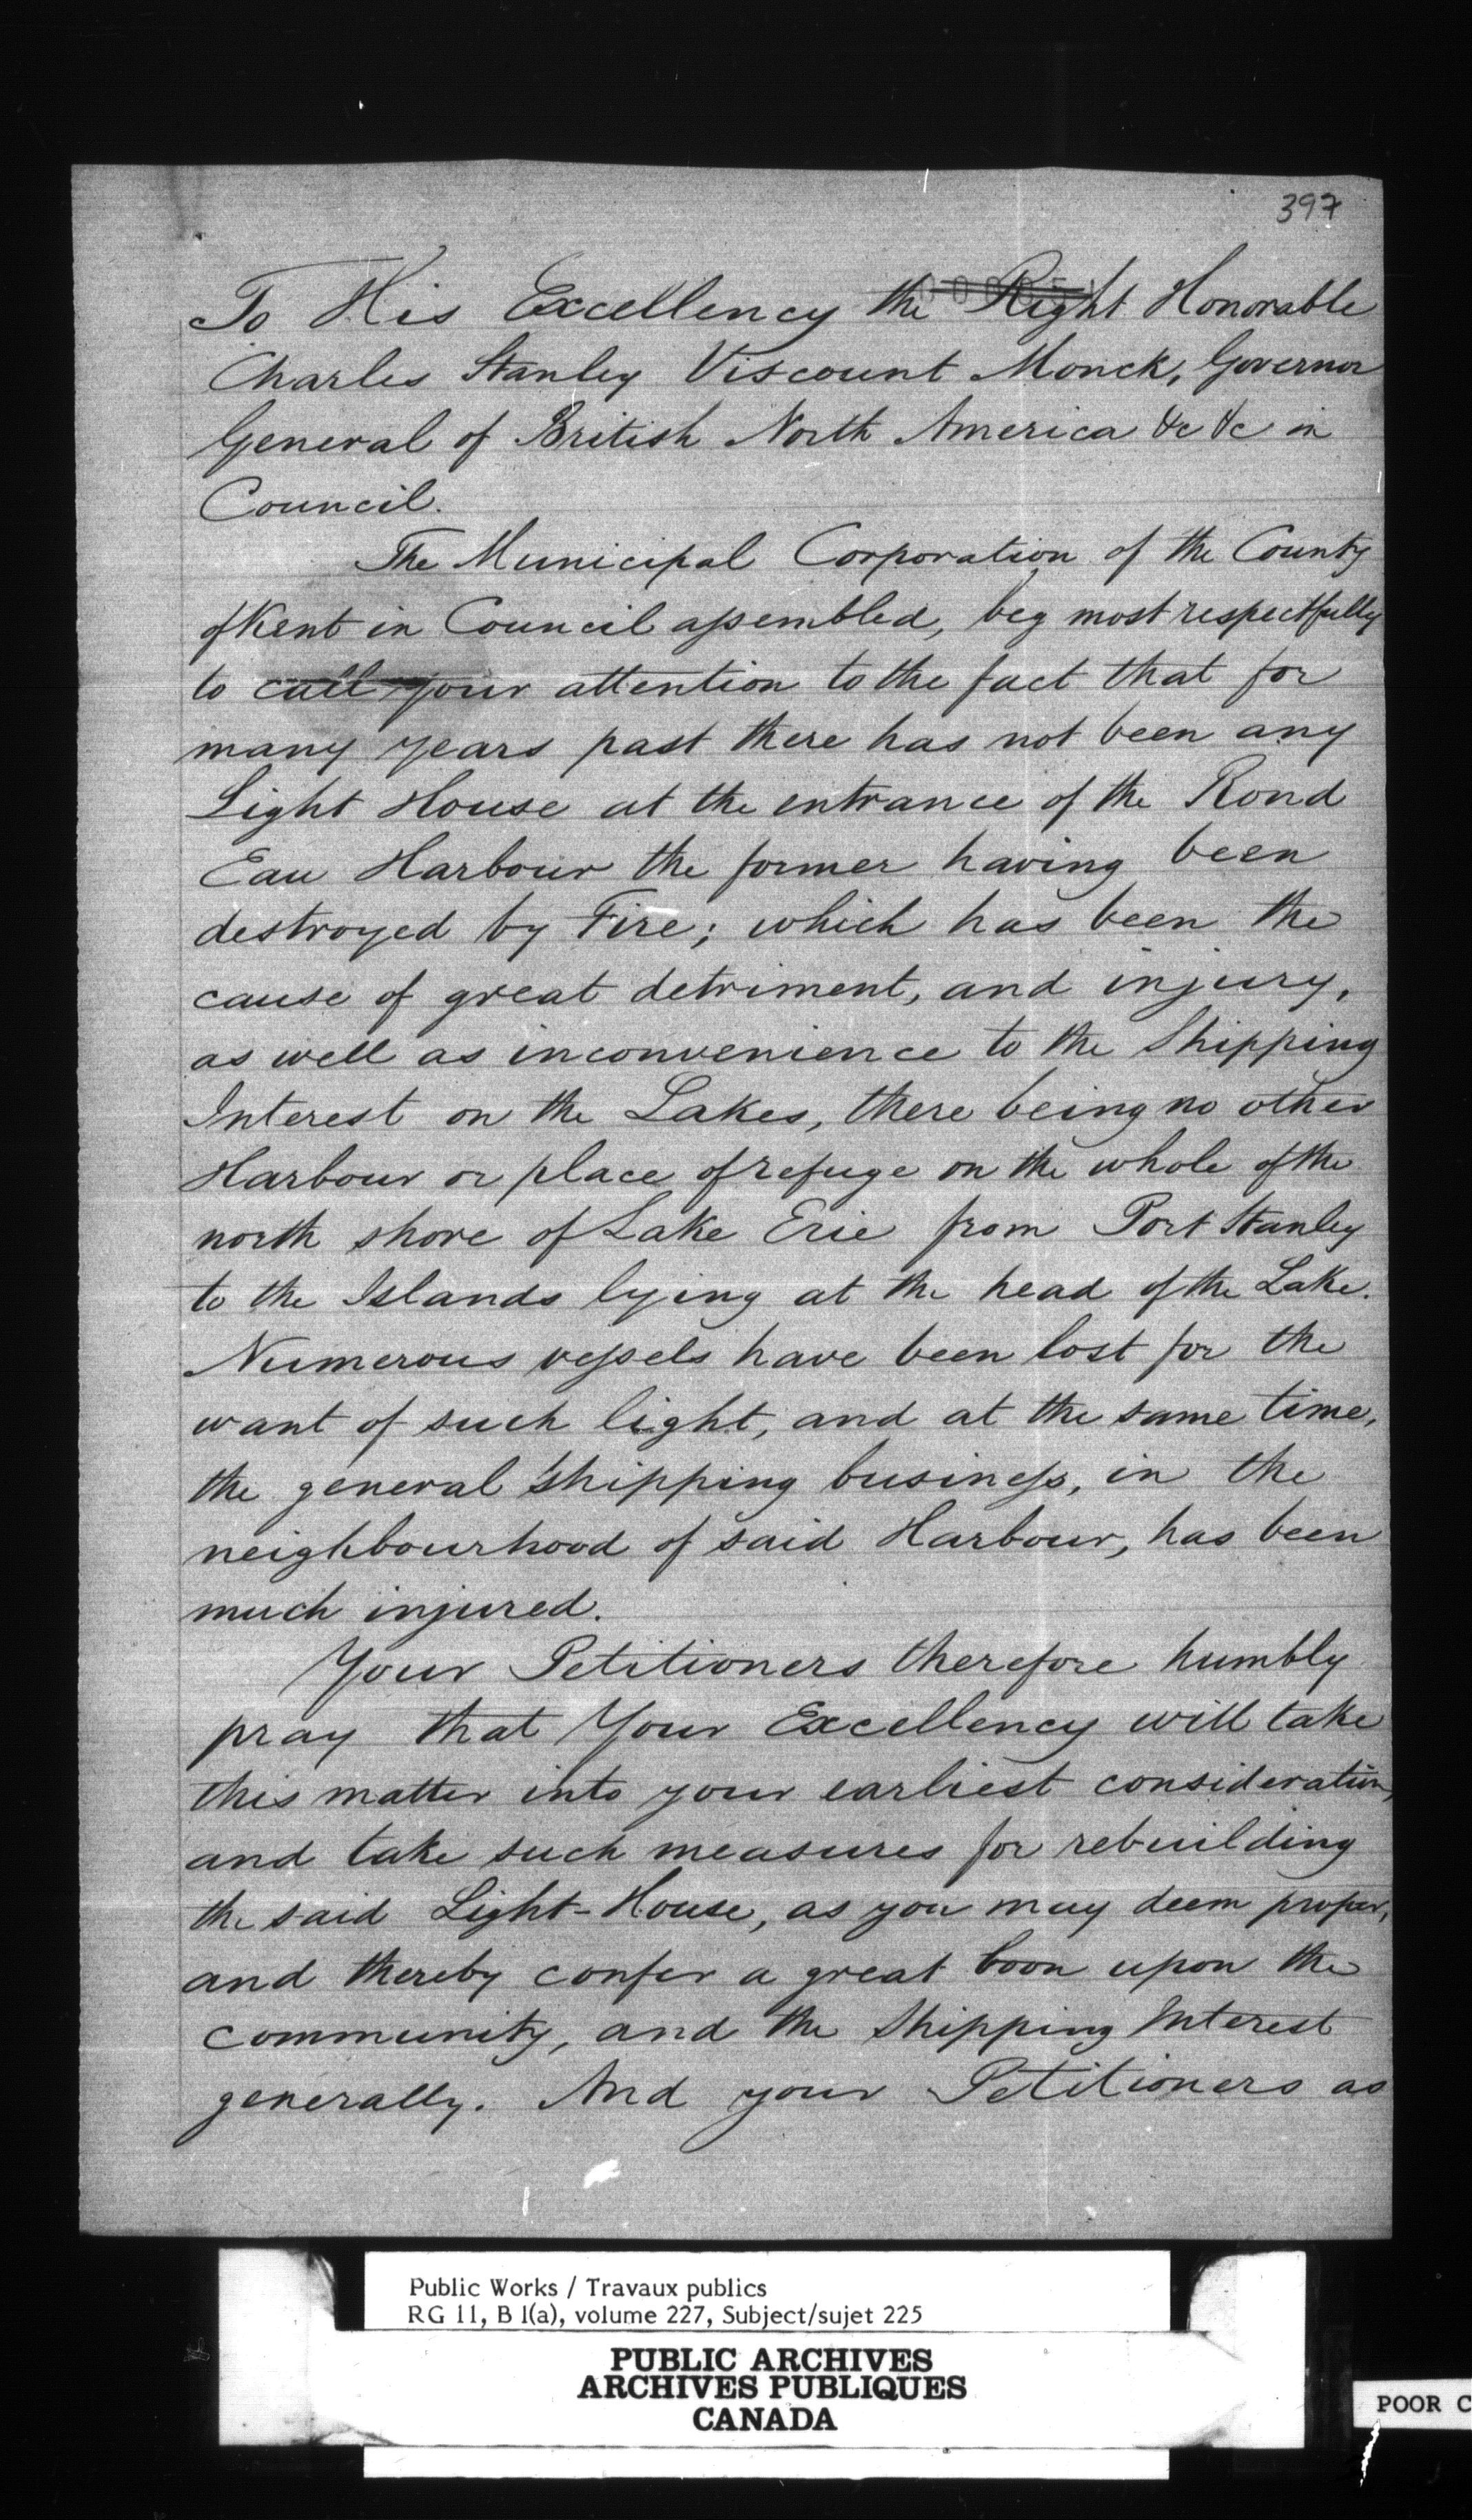 397
To His Excellency the Right Honorable
Charles Stanley Viscount Monck, Governor
General of British North America &c &c in
Council.
The Municipal Corporation of the County
of Kent in Council assembled, beg most respectfully
to call your attention to the fact that for
many years past there has not been any
Light House at the entrance of the Rond
Eau Harbour the former having been
destroyed by Fire; which has been the
cause of great detriment, and injury,
as well as inconvenience to the Shipping
Interest on the Lakes, there being no other
Harbour or place of refuge on the whole of the
north shore of Lake Erie from Port Stanley
to the Islands lying at the head of the Lake.
Numerous vessels have been lost for the
want of such light, and at the same time,
the general shipping business, in the
neighbourhood of said Harbour, has been
much injured.
Your Petitioners therefore humbly
pray that Your Excellency will take
this matter into your earliest consideration,
and take such measures for rebuilding
the said Light-House, as you may deem proper,
and thereby confer a great boon upon the
community, and the Shipping Interest
generally. And your Petitioners as
Public Works / Travaux publics
RG 11, B 1(a), volume 227, Subject/sujet 225
PUBLIC ARCHIVES
ARCHIVES PUBLIQUES
CANADA
POOR C